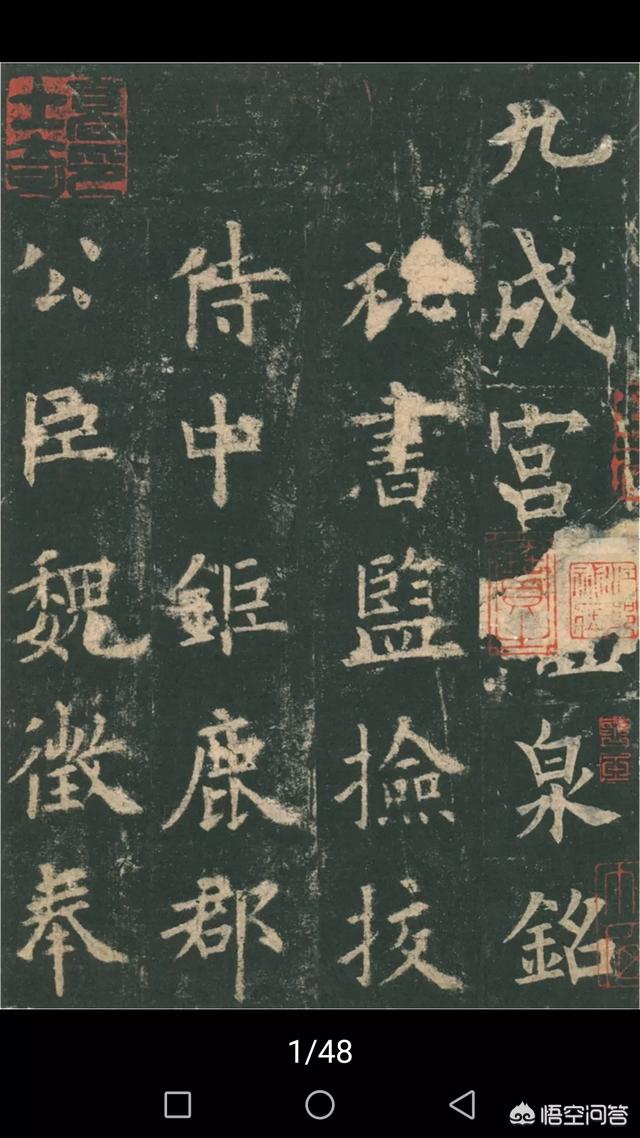 九成宮泉銘
祕書監撿挍
侍中鉅鹿郡
公臣魏徵奉
1/48
悟空问答